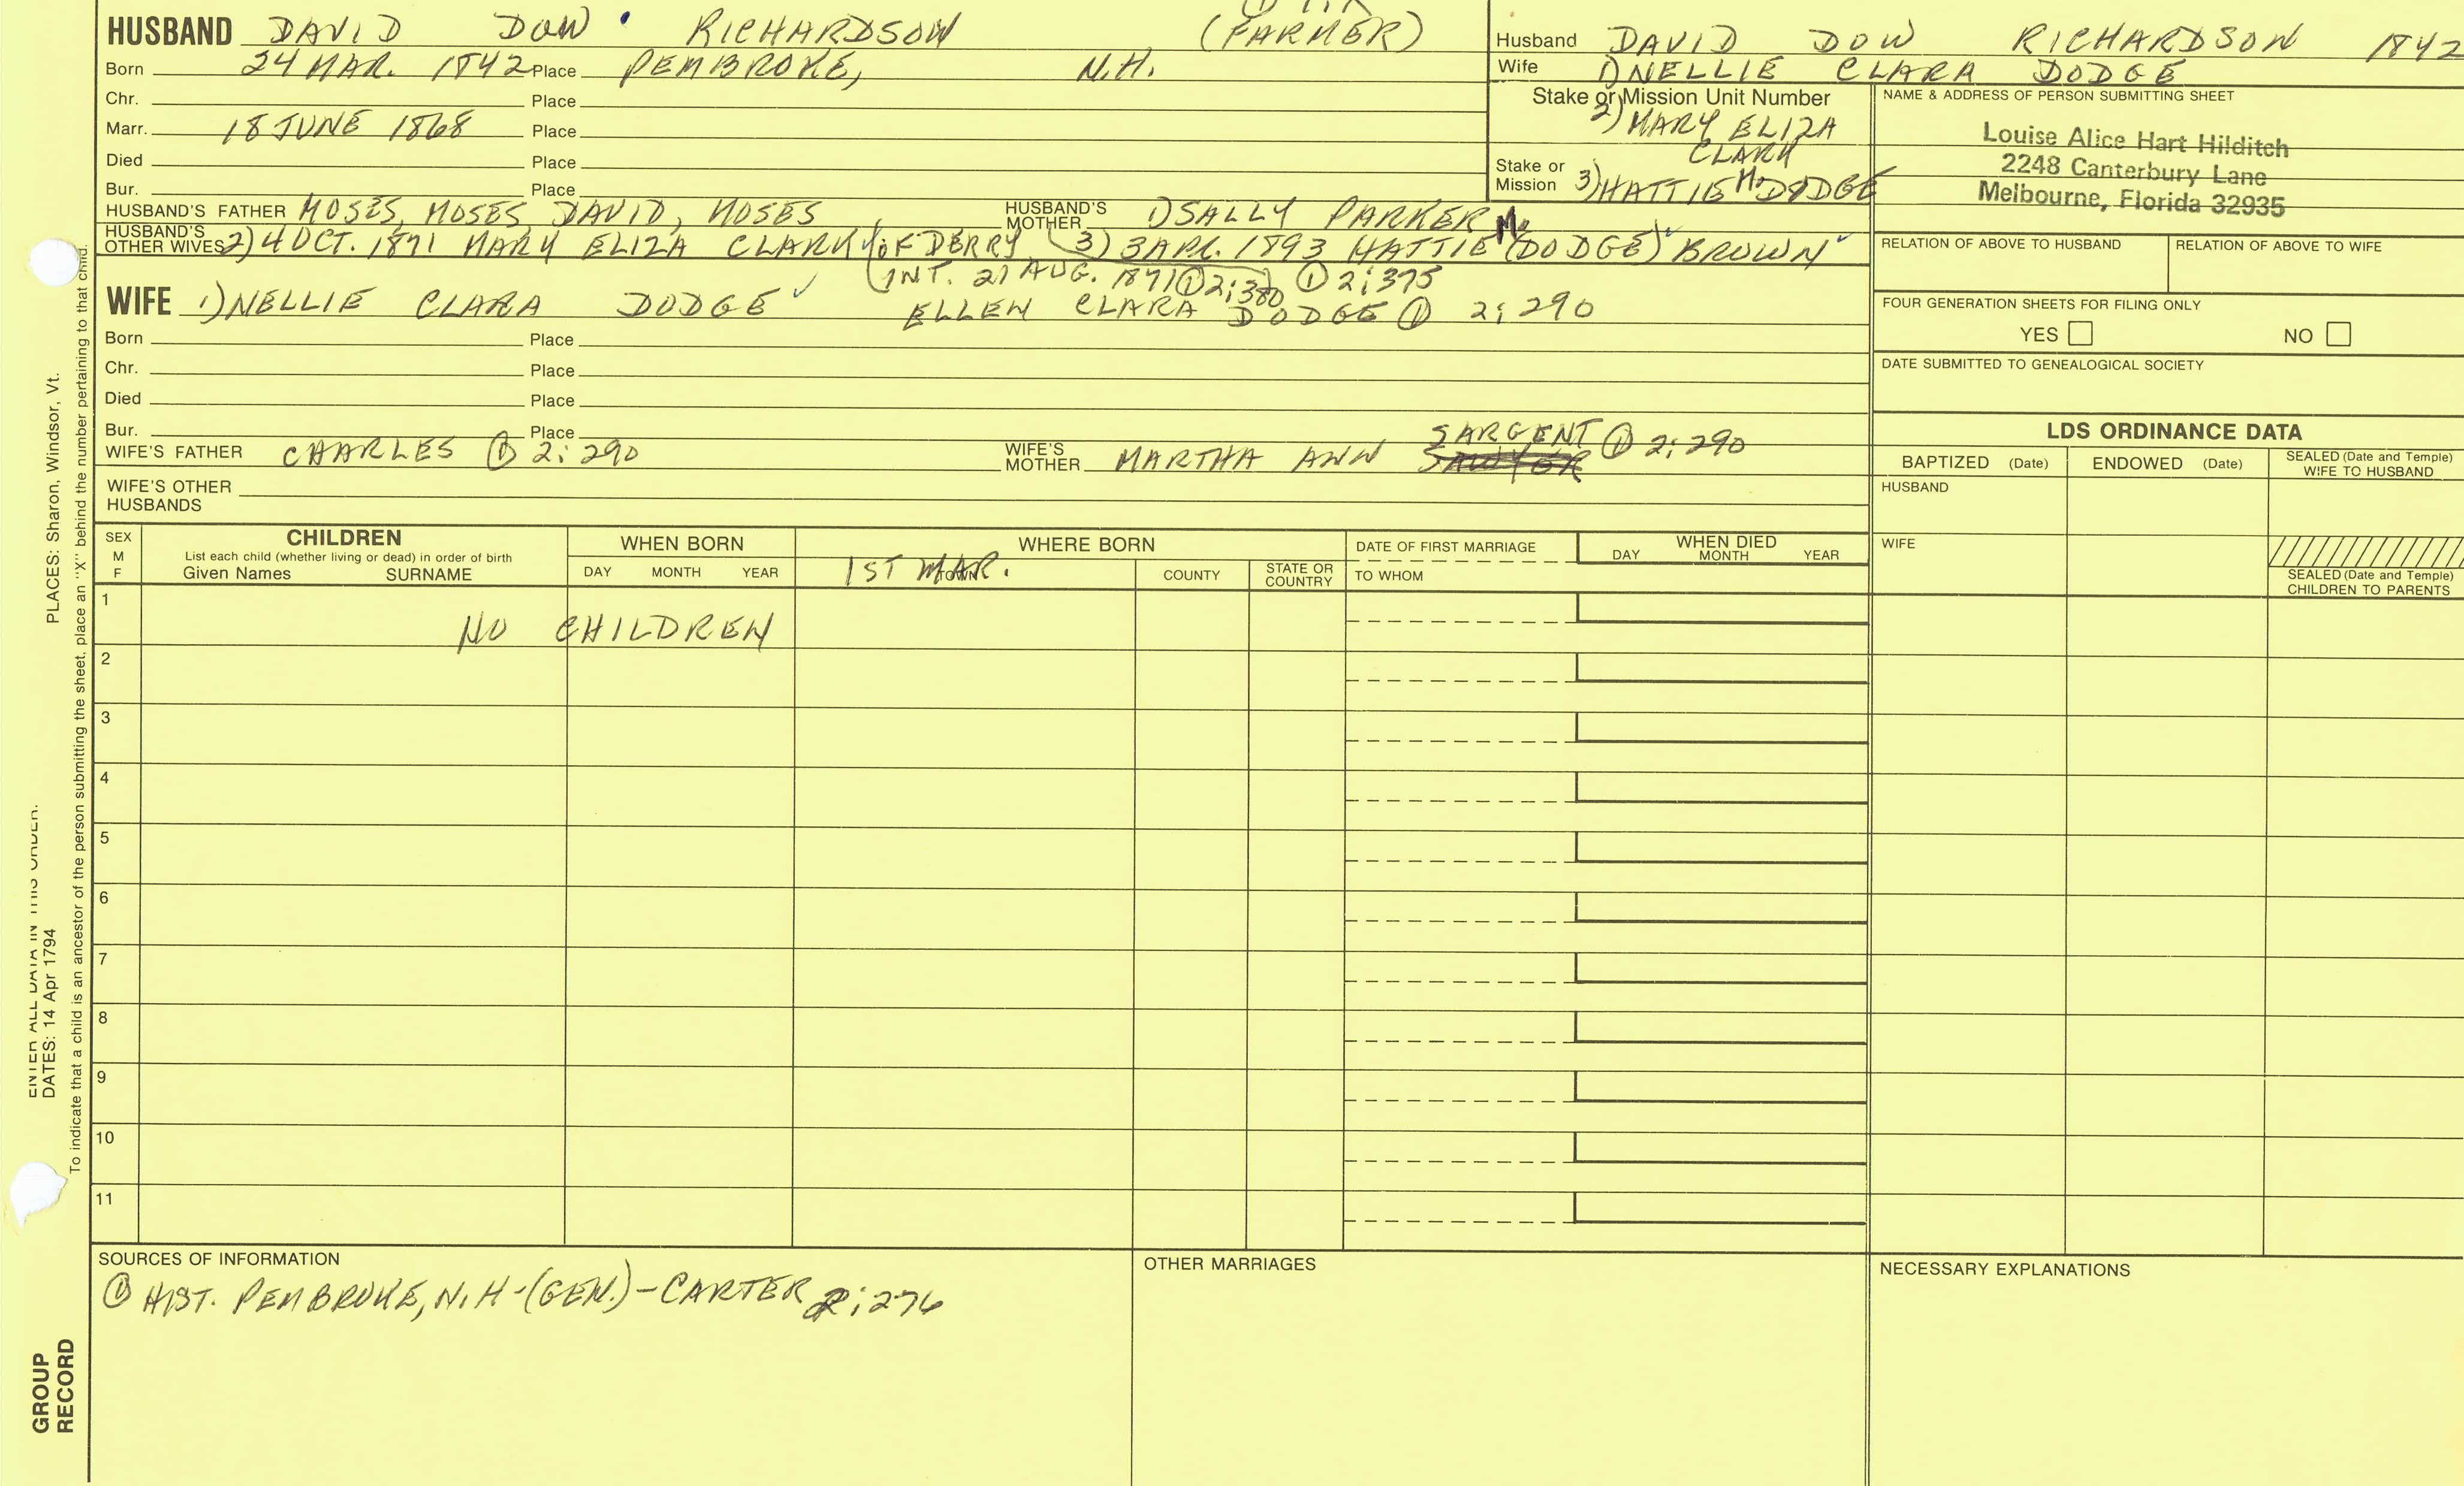 HUSBAND DAVID DOW RICHARDSON (FARMER)
Born 24 MAR. 1842 Place PEMBROKE, N.H.
Chr. Place
Marr. 18 JUNE 1868 Place
Died Place
Bur. Place
HUSBAND'S FATHER MOSES, MOSES, DAVID, MOSES HUSBAND'S MOTHER 1) SALLY PARKER
HUSBAND'S OTHER WIVES 2) 4 OCT. 1871 MARY ELIZA CLARK OF DERRY 3) 3 APR. 1893 HATTIE M. (DODGE) BROWN
(INT. 21 AUG. 1871 ① 2:380 ① 2:375
WIFE 1) NELLIE CLARA DODGE ✓ ELLEN CLARA DODGE ① 2:290
Born Place
Chr. Place
Died Place
Bur. Place
WIFE'S FATHER CHARLES ① 2:290 WIFE'S MOTHER MARTHA ANN SARGENT ① 2:290
WIFE'S OTHER HUSBANDS
Husband DAVID DOW RICHARDSON 1842
Wife 1) NELLIE CLARA DODGE
Stake or Mission Unit Number
2) MARY ELIZA
CLARK
Stake or Mission 3) HATTIE M. DODGE
NAME & ADDRESS OF PERSON SUBMITTING SHEET
Louise Alice Hart Hilditch
2248 Canterbury Lane
Melbourne, Florida 32935
RELATION OF ABOVE TO HUSBAND RELATION OF ABOVE TO WIFE
FOUR GENERATION SHEETS FOR FILING ONLY
YES NO
DATE SUBMITTED TO GENEALOGICAL SOCIETY
LDS ORDINANCE DATA
BAPTIZED (Date) ENDOWED (Date) SEALED (Date and Temple) WIFE TO HUSBAND
HUSBAND
WIFE
SEALED (Date and Temple)
CHILDREN TO PARENTS
SEX M F
CHILDREN
List each child (whether living or dead) in order of birth
Given Names SURNAME
WHEN BORN
DAY MONTH YEAR
WHERE BORN
1ST MAR.
TOWN COUNTY STATE OR COUNTRY
DATE OF FIRST MARRIAGE
TO WHOM
WHEN DIED
DAY MONTH YEAR
1
NO CHILDREN
2
3
4
5
6
7
8
9
10
11
SOURCES OF INFORMATION
① HIST. PEMBROKE, N.H-(GEN.)-CARTER 2:276
OTHER MARRIAGES
NECESSARY EXPLANATIONS
PLACES: Sharon, Windsor, Vt.
ENTER ALL DATA IN THIS ORDER.
DATES: 14 Apr 1794
To indicate that a child is an ancestor of the person submitting the sheet, place an "X" behind the number pertaining to that child.
GROUP
RECORD